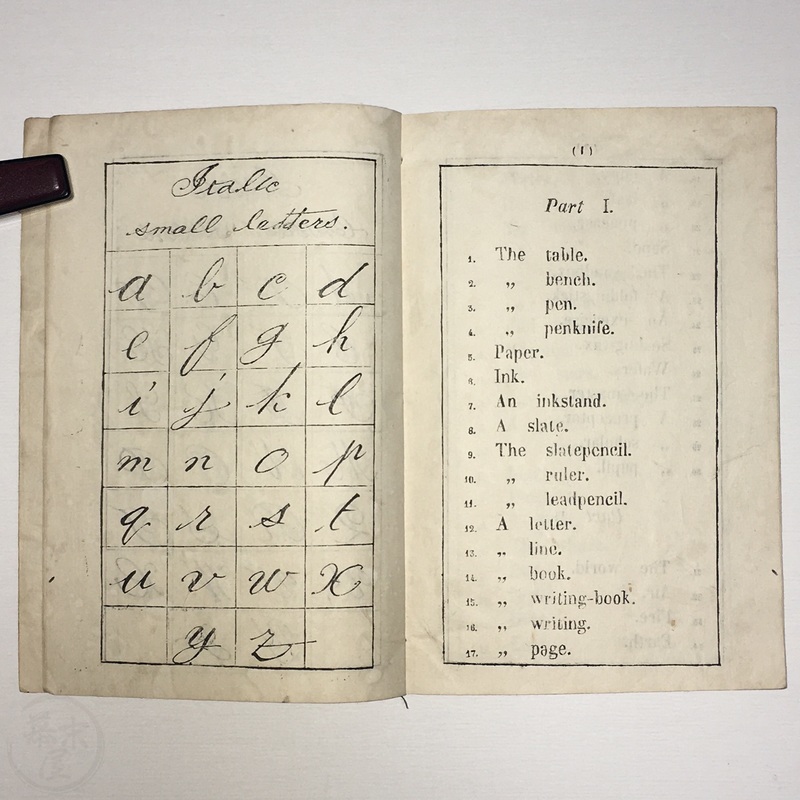 Italic
small ladters.
a b c d
e f g h
i j k l
m n o p
q r s t
u v w x
y z
(1)
Part I.
1. The table.
2. „ bench.
3. „ pen.
4. „ penknife.
5. Paper.
6. Ink.
7. An inkstand.
8. A slate.
9. The slatepencil.
10. „ ruler.
11. „ leadpencil.
12. A letter.
13. „ line.
14. „ book.
15. „ writing-book.
16. „ writing.
17. „ page.